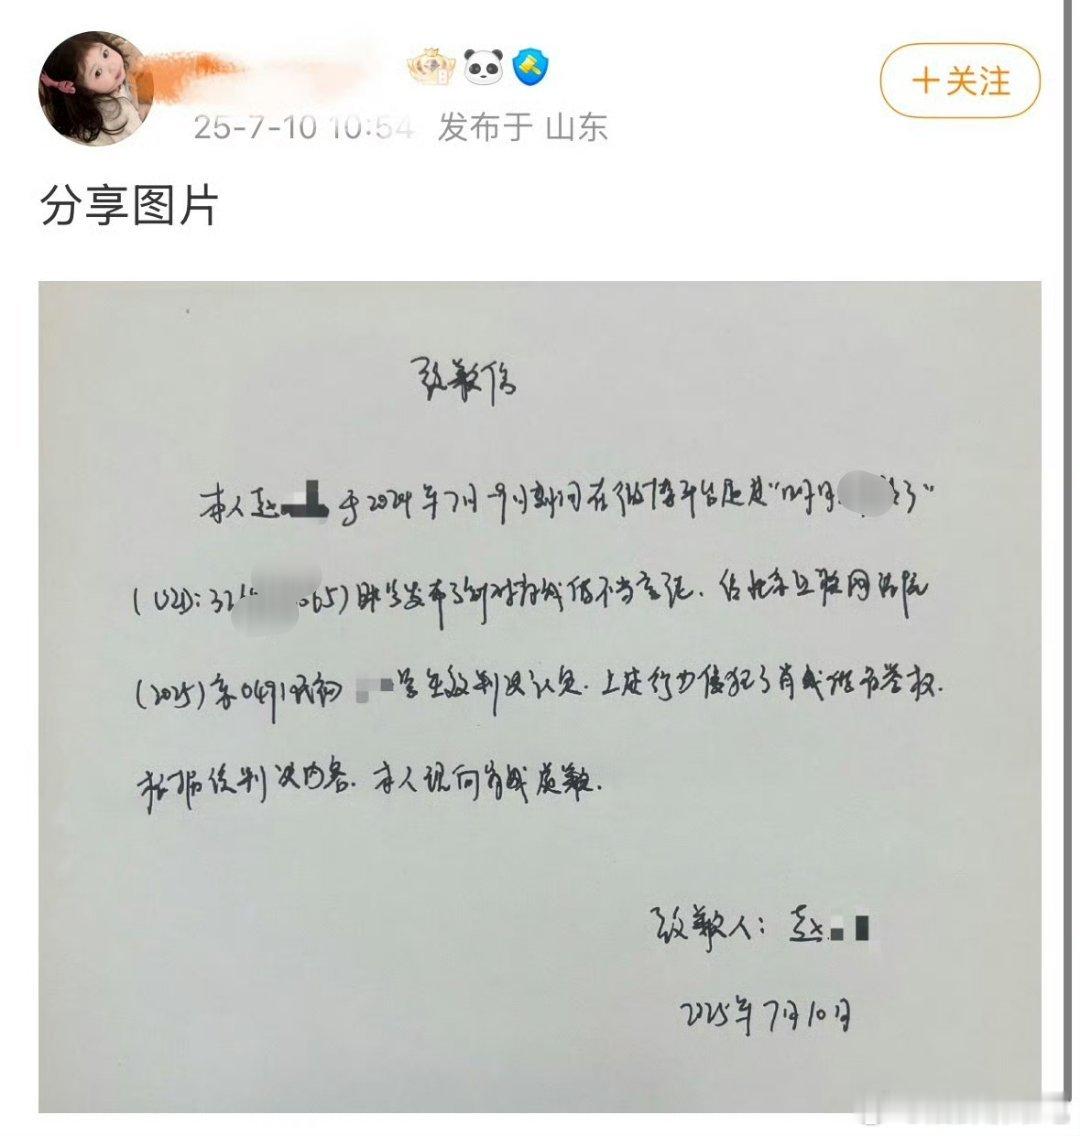 25-7-10 10:54 发布于 山东
+关注
分享图片
致歉信
本人赵 于2024年7月-9月期间在微博平台通过“明月 了”
(UID:32 065)账号发布了针对肖战的不当言论.经北京互联网法院
(2025)京0491民初 号生效判决认定.上述行为侵犯了肖战的名誉权.
根据该判决内容.本人现向肖战道歉.
致歉人:赵
2025年7月10日